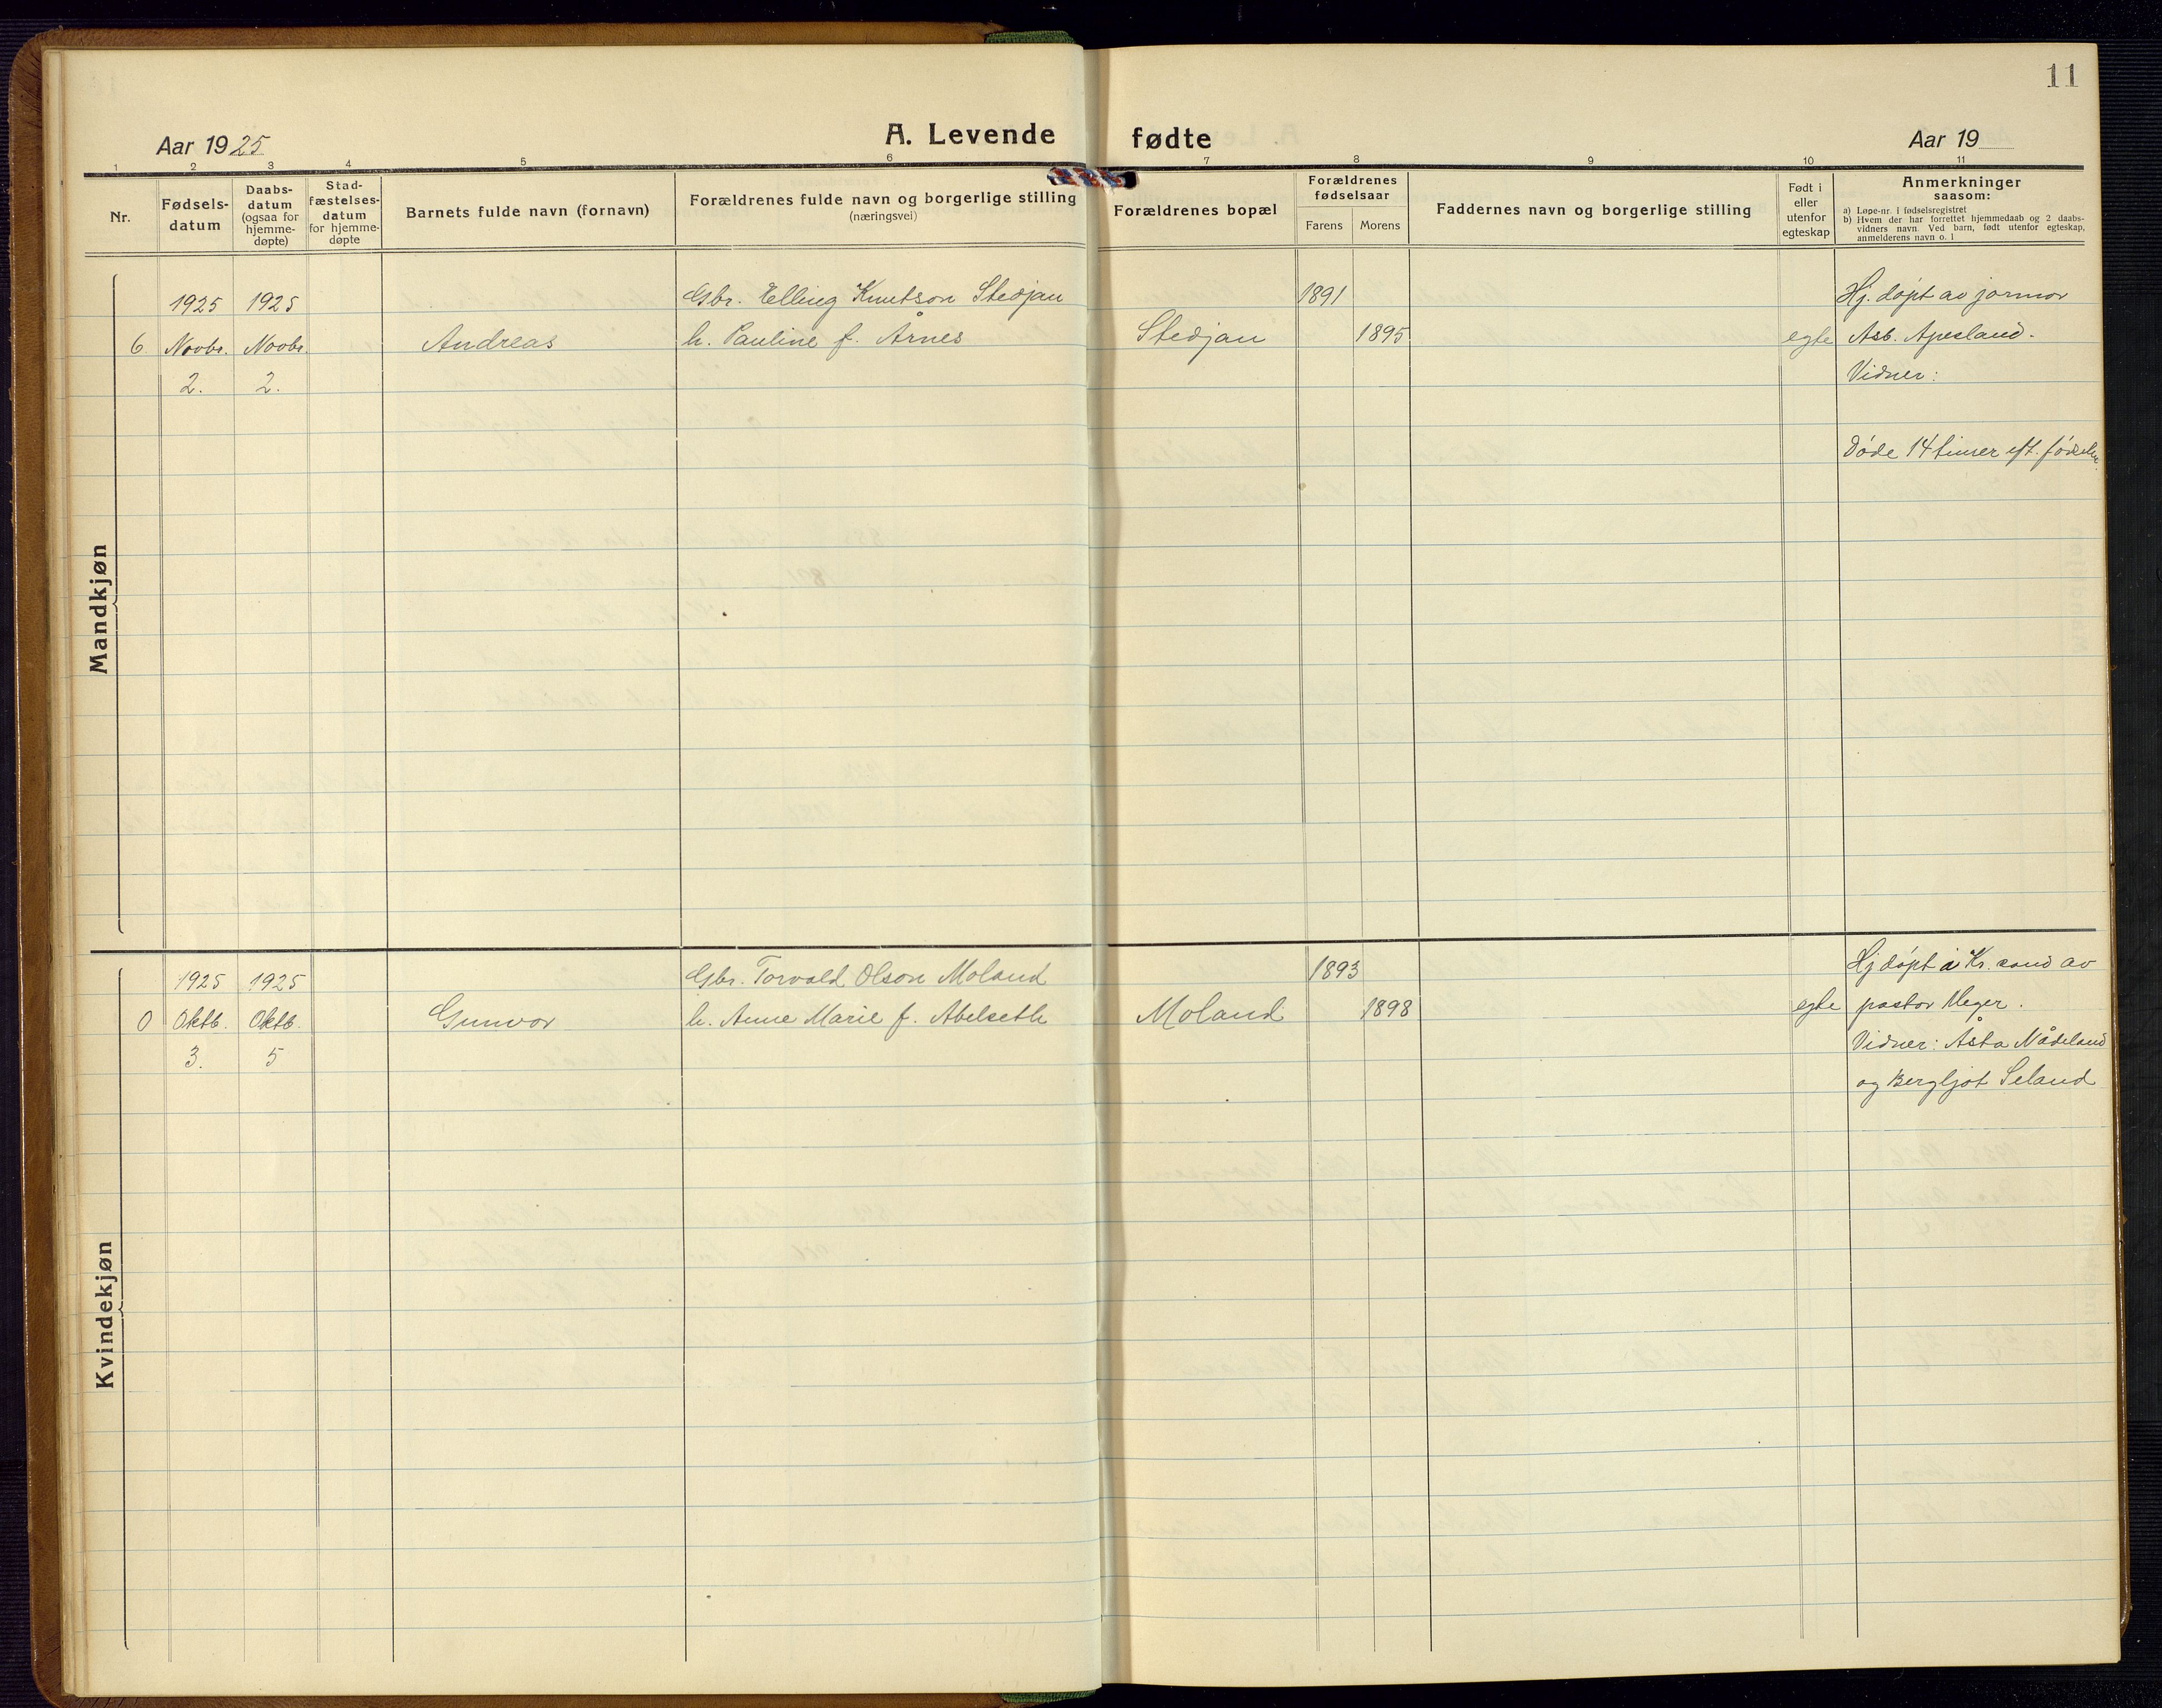 11
Aar 1925
A. Levende fødte
Aar 19
1 2 3 4 5 6 7 8 9 10 11
Nr.
Fødsels-
datum
Daabs-
datum
(ogsaa for
hjemme-
døpte)
Stad-
fæstelses-
datum
for hjemme-
døpte
Barnets fulde navn (fornavn)
Forældrenes fulde navn og borgerlige stilling
(næringsvei)
Forældrenes bopæl
Forældrenes
fødselsaar
Farens Morens
Faddernes navn og borgerlige stilling
Født i
eller
utenfor
egteskap
Anmerkninger
saasom:
a) Løpe-nr. i fødselsregistret
b) Hvem der har forrettet hjemmedaab og 2 daabs-
vidners navn. Ved barn, født utenfor egteskap,
anmelderens navn o. l
Mandkjøn
1925 1925 Gbr. Elling Knutson Stedjan 1891 Hj. døpt av jormor
6. Novbr. Novbr. Andreas h. Pauline f. Årnes Stedjan 1895 egte Asb. Apesland.
2. 2. Vidner:
Døde 14 timer eft. fødselen.
Kvindekjøn
1925 1925 Gbr. Torvald Olson Moland 1893 Hj døpt i Kr. sand av
0 Oktb. Oktb. Gunvor h. Anne Marie f. Abelseth Moland 1898 egte pastor Meyer.
3. 5 Vidner: Åsta Nådeland
og Bergljot Seland